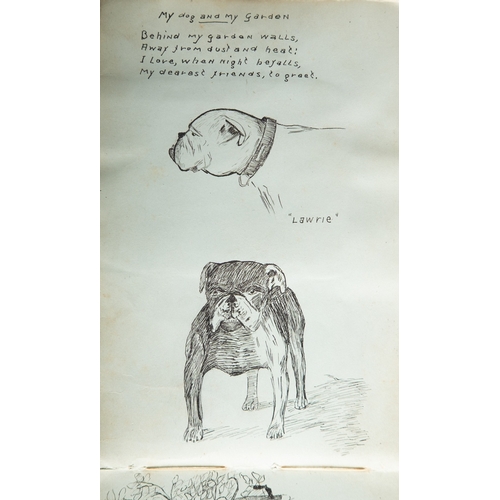 My dog and my garden
Behind my garden walls,
Away from dust and heat;
I love, when night befalls,
My dearest friends, to greet.
"Lawrie"